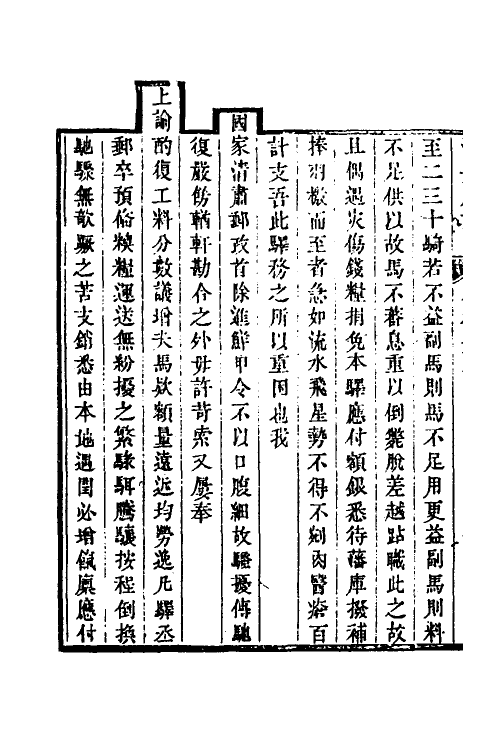 至二三十騎若不益副馬則馬不足用更益副馬則料
不足供以故馬不蕃息重以倒斃脫差越點職此之故
且偶遇災傷錢糧捐免本驛應付額銀悉待藩庫撥補
捧羽檄而至者急如流水飛星勢不得不剜肉醫瘡百
計支吾此驛務之所以重困也我
國家清肅郵政首除進鮮甲令不以口腹細故騷擾傳馳
復嚴飭輶軒勘合之外毋許苛索又屢奉
上諭酌復工料分數議增夫馬欵額量遠近均勞逸凡驛丞
郵卒預偹糗糧運送無紛擾之繁騄駬騰驤按程倒換
馳驟無欹𨄮之苦支銷悉由本地遇閏必增餼廩應付